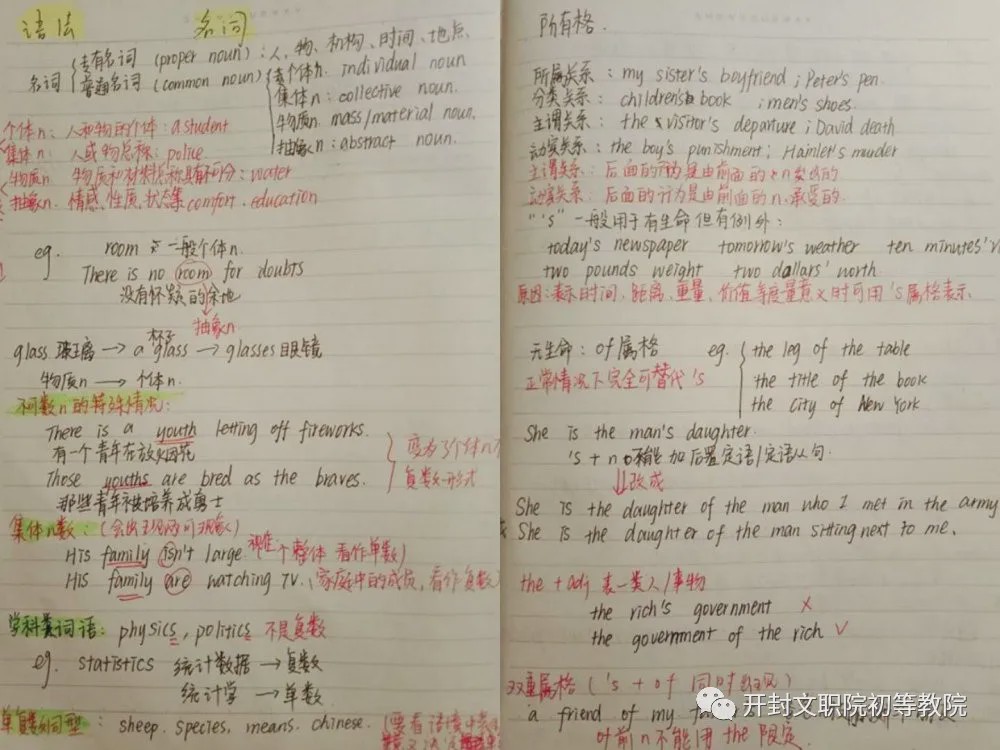 语法 名词
名词 专有名词 (proper noun) : 人、物、机构、时间、地点.
普通名词 (common noun) 个体n. individual noun
集体n : collective noun.
物质n. mass/material noun.
抽象n : abstract noun.
个体n : 人和物的个体 : a student
集体n : 人或物总称 : police
物质n 物质和材料总称具有不可分 : water
抽象n. 情感、性质、状态 comfort . education
eg. room 一般个体n.
There is no room for doubts
没有怀疑的余地
抽象n.
杯子
glass 玻璃 → a glass → glasses 眼镜
物质n → 个体n.
不可数n的特殊情况:
There is a youth letting off fireworks.
有一个青年在放烟花
Those youths are bred as the braves.
那些青年被培养成勇士
变为了个体n
复数形式
集体n数:
His family isn't large. 整体 看作单数)
His family are watching TV. (家庭中的成员, 看作复数
学科类词语: physics, politics 不是复数
eg. statistics 统计数据 → 复数
统计学 → 单数
单复数同型 : sheep. species, means. chinese.
所有格.
所属关系 : my sister's boyfriend ; Peter's pen.
分类关系 : children's book ; men's shoes.
主谓关系 : the visitor's departure ; David death
动宾关系 : the boy's punishment ; Hamlet's murder
主谓关系 : 后面的行为是由前面的n发出的.
动宾关系 : 后面的行为是由前面的n.承受的.
"'s" 一般用于有生命但有例外 :
today's newspaper tomorrow's weather ten minutes'
two pounds weight two dollars' worth.
原因:表示时间、距离、重量、价值等度量意义时可用's属格表示.
无生命 : of 属格 eg. the leg of the table
the title of the book
the city of New York
正常情况下完全可替代's
She is the man's daughter.
's + n 不能加后置定语/定语从句.
改成
She is the daughter of the man who I met in the army
She is the daughter of the man sitting next to me.
the + adj 表一类人/事物
the rich's government ×
the government of the rich √
双重属格 ('s + of 同时出现)
a friend of my
of 前n不能用 the 限定
开封文职院初等教院